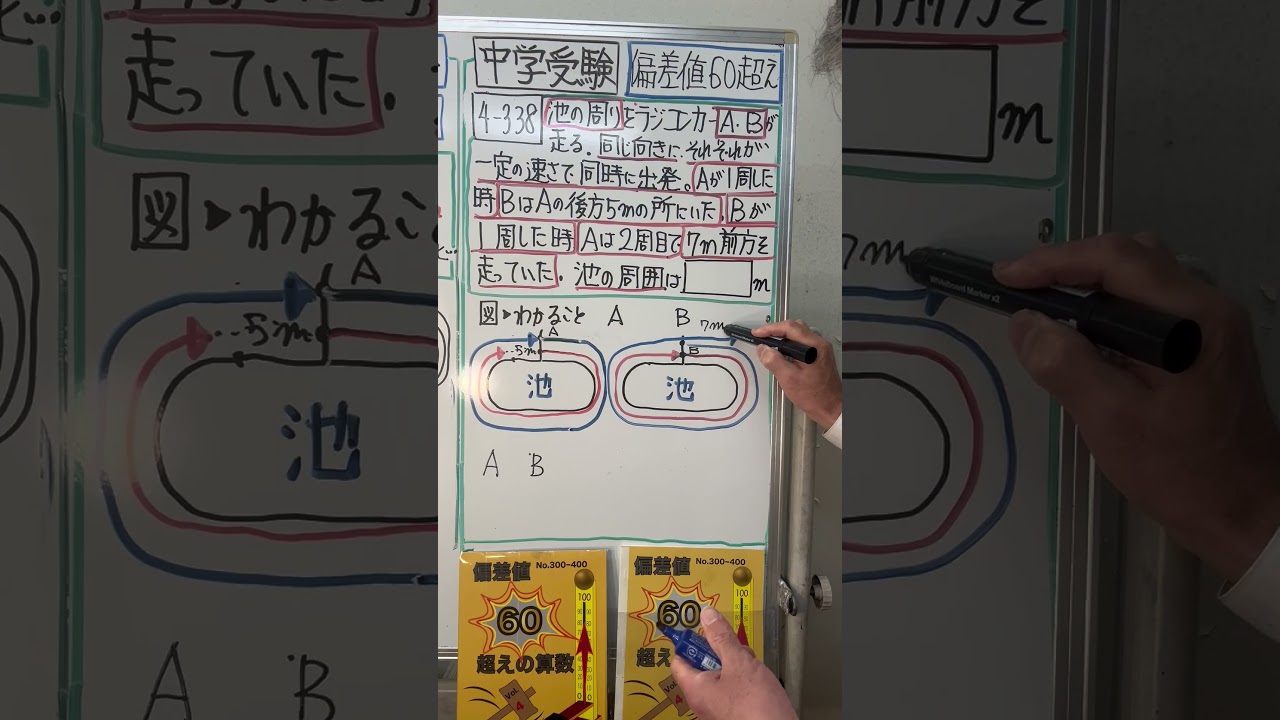 中学受験 偏差値60超え
4-338 池の周りをラジコンカーA・Bが
走る。同じ向きに、それぞれが
一定の速さで同時に出発。Aが1周した
時BはAの後方5mの所にいた。Bが
1周した時Aは2周目で7m前方を
走っていた。池の周囲は m
図▶わかること A B
A
‥5m
池
7m
B
池
A B
偏差値 No.300~400
60
超えの算数
Vol.
4
100
90
80
70
60
50
40
30
20
10
0
偏差値 No.300~400
60
超え
Vol.
4
100
走っていた.
m
図▶わかること
A
‥5m
池
A B
前方を
7m
Whiteboard Marker x2